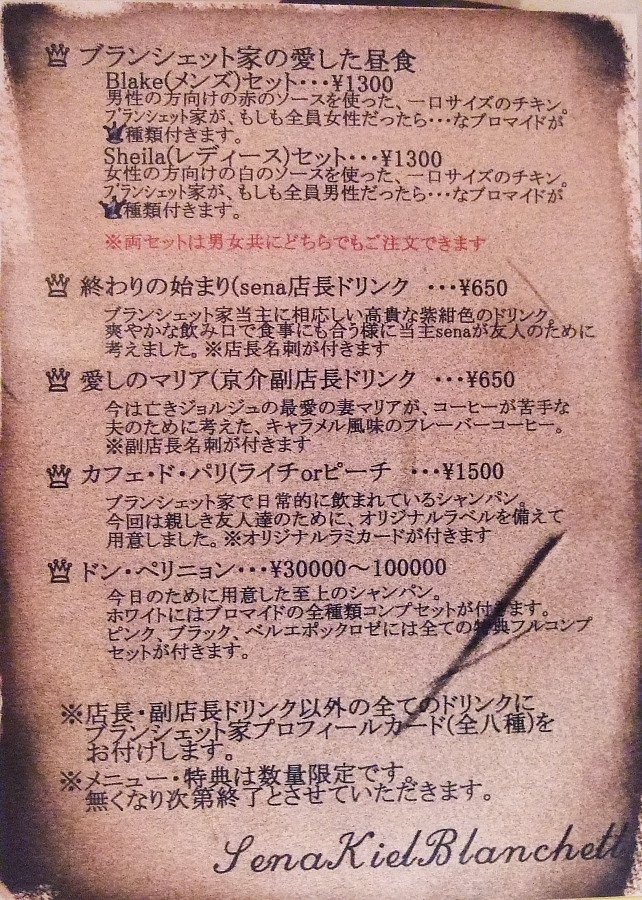 ブランシェット家の愛した昼食
Blake(メンズ)セット・・・¥1300
男性の方向けの赤のソースを使った、一口サイズのチキン。
ブランシェット家が、もしも全員女性だったら・・・なブロマイドが
種類付きます。
Sheila(レディース)セット・・・¥1300
女性の方向けの白のソースを使った、一口サイズのチキン。
ブランシェット家が、もしも全員男性だったら・・・なブロマイドが
種類付きます。
※両セットは男女共にどちらでもご注文できます
終わりの始まり(sena店長ドリンク ・・・¥650
ブランシェット家当主に相応しい高貴な紫紺色のドリンク。
爽やかな飲み口で食事にも合う様に当主senaが友人のために
考えました。※店長名刺が付きます
愛しのマリア(京介副店長ドリンク ・・・¥650
今は亡きジョルジュの最愛の妻マリアが、コーヒーが苦手な
夫のために考えた、キャラメル風味のフレーバーコーヒー。
※副店長名刺が付きます
カフェ・ド・パリ(ライチorピーチ ・・・¥1500
ブランシェット家で日常的に飲まれているシャンパン。
今回は親しき友人達のために、オリジナルラベルを備えて
用意しました。※オリジナルラミカードが付きます
ドン・ペリニョン・・・¥30000〜100000
今日のために用意した至上のシャンパン。
ホワイトにはブロマイドの全種類コンプセットが付きます。
ピンク、ブラック、ベルエポックロゼには全ての特典フルコンプ
セットが付きます。
※店長・副店長ドリンク以外の全てのドリンクに
ブランシェット家プロフィールカード(全八種)を
お付けします。
※メニュー・特典は数量限定です。
無くなり次第終了とさせていただきます。
SenaKielBlanchett